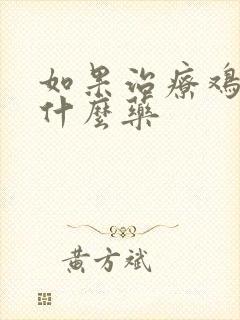 如果治療鸡
什麼藥
黃方斌